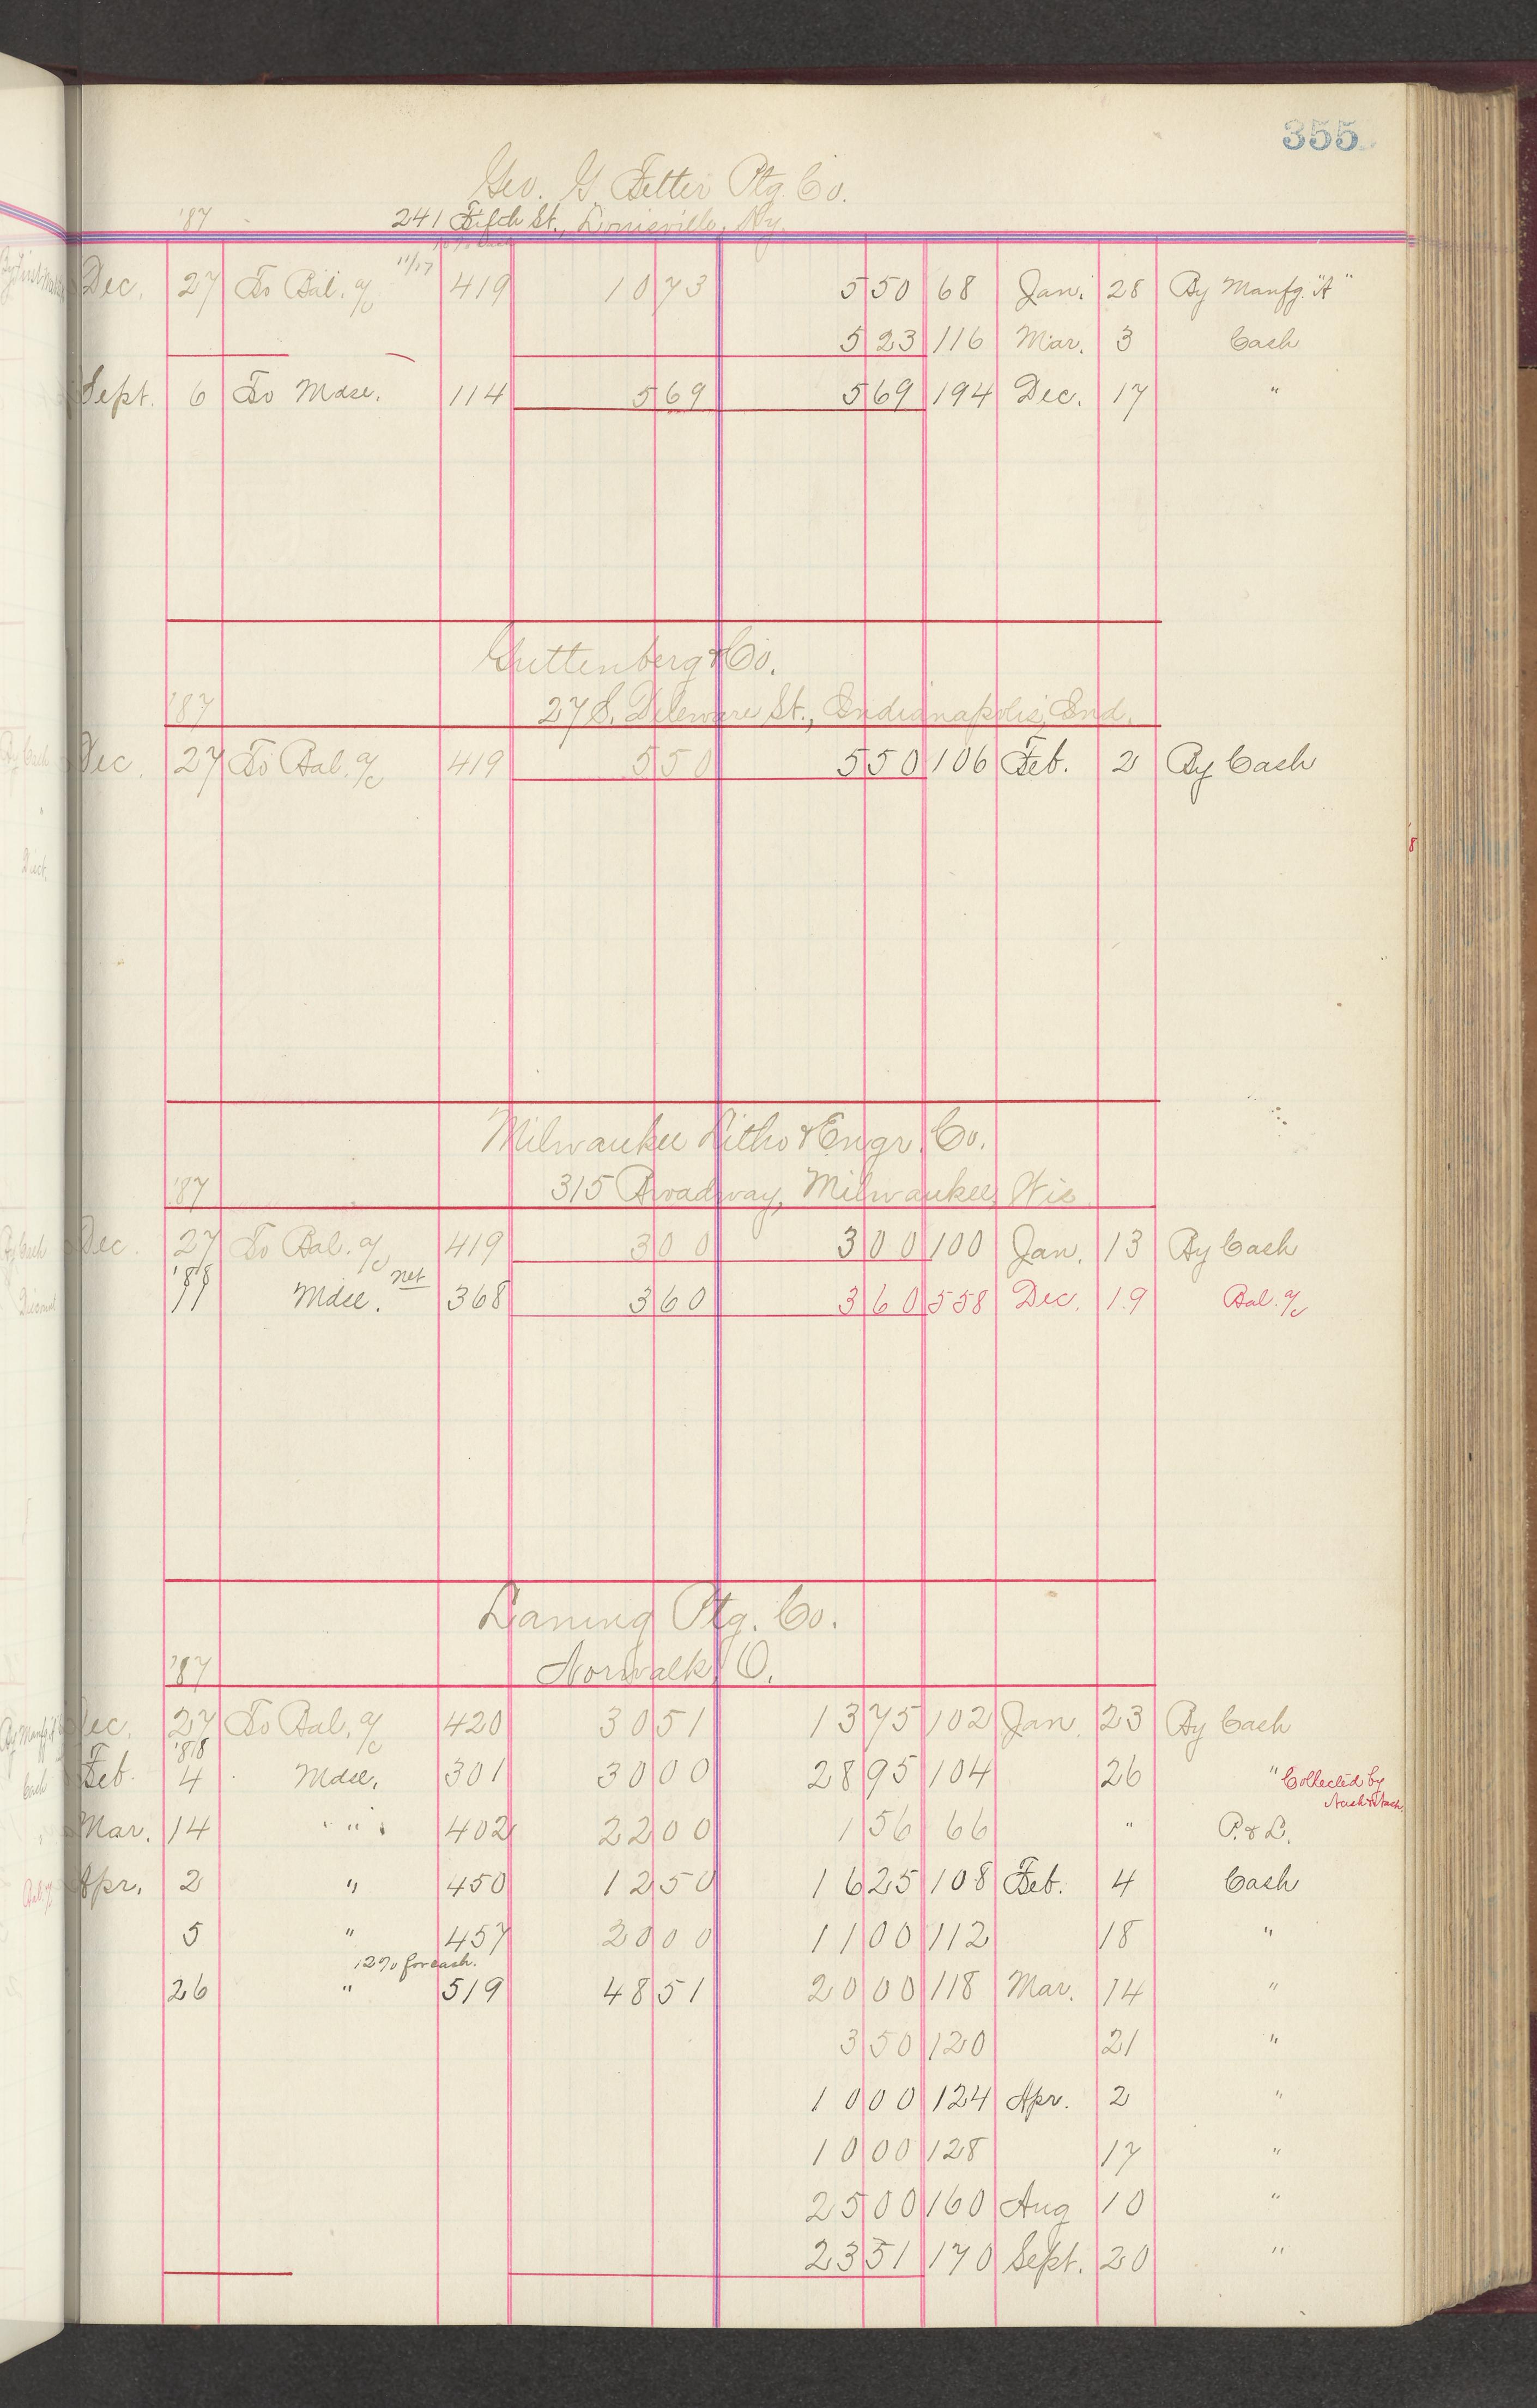 355
Geo. G. Fetter Ptg. Co.
'87 241 Fifth St., Louisville, Ky.
11/17
Dec. 27 To Bal. a/c 419 10 73 5 50 68 Jan. 28 By Manfg. "A"
5 23 116 Mar. 3 Cash
Sept. 6 To Mdse. 114 5 69 5 69 194 Dec. 17 "
Guttenberg & Co.
'87 27 S. Deleware St., Indianapolis, Ind.
Dec. 27 To Bal. a/c 419 5 50 5 50 106 Feb. 2 By Cash
Milwaukee Litho & Engr. Co.
'87 315 Broadway, Milwaukee, Wis.
Dec. 27 To Bal. a/c 419 3 00 3 00 100 Jan. 13 By Cash
'88 net
11 Mdse. 368 3 60 3 60 558 Dec. 19 Bal. a/c
Laning Ptg. Co.
'87 Norwalk, O.
Dec. 27 To Bal. a/c 420 30 51 13 75 102 Jan. 23 By Cash
'88
Feb. 4 Mdse. 301 30 00 28 95 104 26 " Collected by
Nash & Nash
Mar. 14 " 402 22 00 1 56 66 " P. & L.
Apr. 2 " 450 12 50 16 25 108 Feb. 4 Cash
5 " 457 20 00 11 00 112 18 "
2% for cash.
26 " 519 48 51 20 00 118 Mar. 14 "
3 50 120 21 "
10 00 124 Apr. 2 "
10 00 128 17 "
25 00 160 Aug 10 "
23 51 170 Sept. 20 "